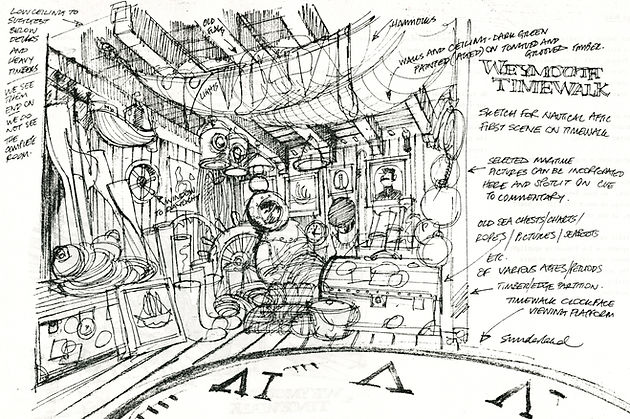 LOW CEILING TO
SUGGEST
BELOW
DECKS
AND
HEAVY
TIMBERS
WE SEE
THEM
END ON
WE DO
NOT SEE
THE
COMPLETE
ROOM.
OLD
FLAG
HAMMOCKS
WALLS AND CEILING - DARK GREEN
PAINTED (AGED) ON TONGUED AND
GROOVED TIMBER.
WEYMOUTH
TIMEWALK
SKETCH FOR NAUTICAL ATTIC
FIRST SCENE ON TIMEWALK
WINDOW
SELECTED MARITIME
PICTURES CAN BE INCORPORATED
HERE AND SPOTLIT ON CUE
TO COMMENTARY.
OLD SEA CHESTS/CHARTS/
ROPES/PICTURES/SEABOOTS
ETC.
OF VARIOUS AGES/PERIODS
TIMBER/EDGE PARTITION.
TIMEWALK CLOCKFACE
VIEWING PLATFORM
Sunderland
VI V IV